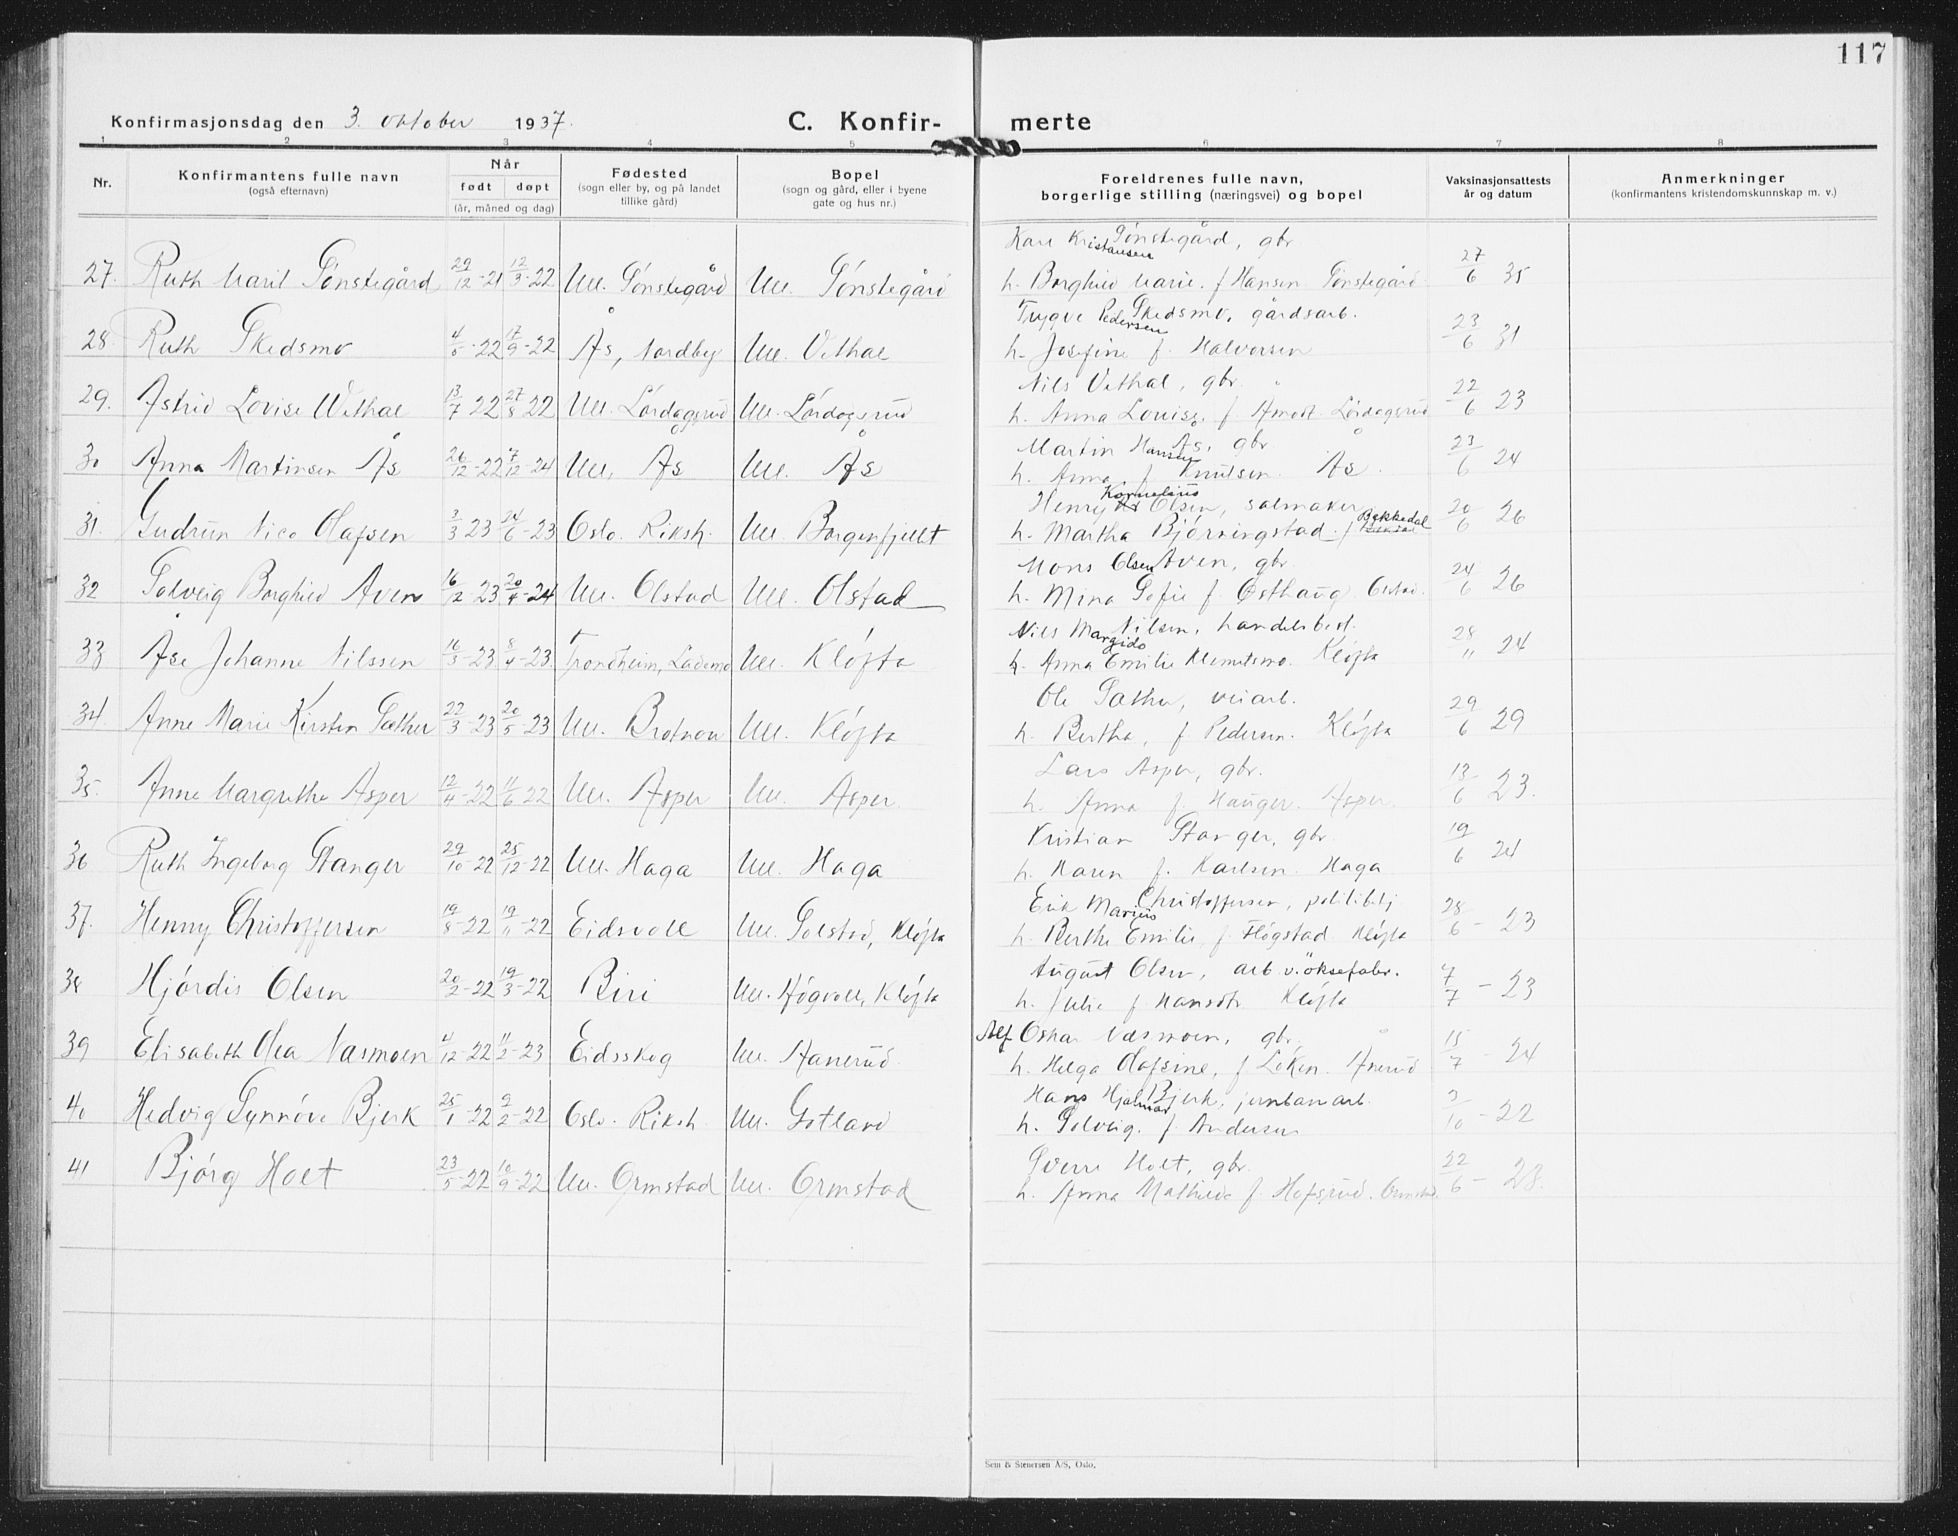 117
Konfirmasjonsdag den 3. oktober 1937.
C. Konfir- merte
1 2 3 4 5 6 7 8
Nr.
Konfirmantens fulle navn
(også efternavn)
Når
født døpt
(år, måned og dag)
Fødested
(sogn eller by, og på landet
tillike gård)
Bopel
(sogn og gård, eller i byene
gate og hus nr.)
Foreldrenes fulle navn,
borgerlige stilling (næringsvei) og bopel
Vaksinasjonsattests
år og datum
Anmerkninger
(konfirmantens kristendomskunnskap m. v.)
Kristiansen Tønstegård, gbr.
27. Ruth Marit Tønstegård 29/12-21 12/3-22 Ull. Tønstegård Ull. Tønstegård h. Borghild Marie f. Hansen Tønstegård 27/6 35
Trygve Pedersen Skedsmo, gårdsarb.
28. Ruth Skedsmo 4/5-22 17/9-22 Ås, Nordby Ull. Vethal h. Josefine f. Halvorsen 23/6 31
Nils Vethal, gbr.
29. Astrid Lovise Wethal 13/7 22 27/8 22 Ull. Lørdagsrud Ull. Lørdagsrud h. Anna Louise f. Lørdagsrud 22/6 23
Martin Hansen Ås, gbr.
30 Anna Martinsen Ås 26/12-22 7/12-24 Ull. Ås Ull. Ås h. Anna f. Knutsen. Ås. 23/6 24
Henry Kornelius Olsen, salmaker
31. Gudrun Nico Olafsen 3/3 23 24/6-23 Oslo. Riksh. Ull. Borgenfjellet h. Martha Bjørningstad f. Bekkedal 20/6 26
Mons Olsen Aven, gbr.
32 Solveig Borghild Aven 16/12-23 20/4-24 Ull. Olstad Ull. Olstad h. Mina Sofie f. Østhaug Olstad. 24/6 26
Nils Margido Nilsen, handelsbest.
33 Åse Johanne Nilssen 16/3-23 8/4-23 Trondheim, Lademo Ull. Kløfta h. Anna Emilie Klemetsmo. Kløfta 28/11 24
Ole Sæther, veiarb.
34. Anne Marie Kirsten Sæther 22/3-23 20/5-23 Ull. Ull. Kløfta h. Bertha, f. Pedersen. Kløfta 29/6 29
Lars Asper, gbr.
35. Anne Margrethe Asper 12/4-22 11/6 22 Ull. Asper Ull. Asper h. Anna f. Hauger. Asper. 13/6 23.
Kristian Stanger, gbr.
36 Ruth Ingeborg Stanger 29/10-22 25/12-22 Ull. Haga Ull. Haga h. Karen f. Karlsen. Haga 19/6 24
Erik Marius Christoffersen, politibetj.
37. Henny Christoffersen 19/8-22 19/11-22 Eidsvoll Ull. Solstad, Kløfta h. Berthe Emilie f. Høgstad Kløfta 28/6-23
August Olsen, arb. v. øksefabr.
38 Hjørdis Olsen 20/2-22 19/3-22 Biri Ull. Høgvoll, Kløfta h. Julie f. Hansdtr Kløfta 7/7-23
Alf Oskar Næsmoen, gbr.
39 Elisabeth Olea Næsmoen 4/12-22 11/2-23 Eidsskog Ull. Aanerud. h. Helga Olafsine, f. Løken. Ånerud 15/7-24
Hans Hjalmar Bjerk, jernbanarb.
40 Hedvig Synnøve Bjerk 25/1-22 9/2-22 Oslo. Riksh. Ull. Gotland h. Solveig. f. Andersen 3/10-22
Sverre Holt, gbr.
41 Bjørg Holt 23/5-22 10/9-22 Ull. Ormstad Ull. Ormstad h. Anna Mathilde f. Hofsrud. Ormstad. 22/6-28.
Sem & Stenersen A/S, Oslo.